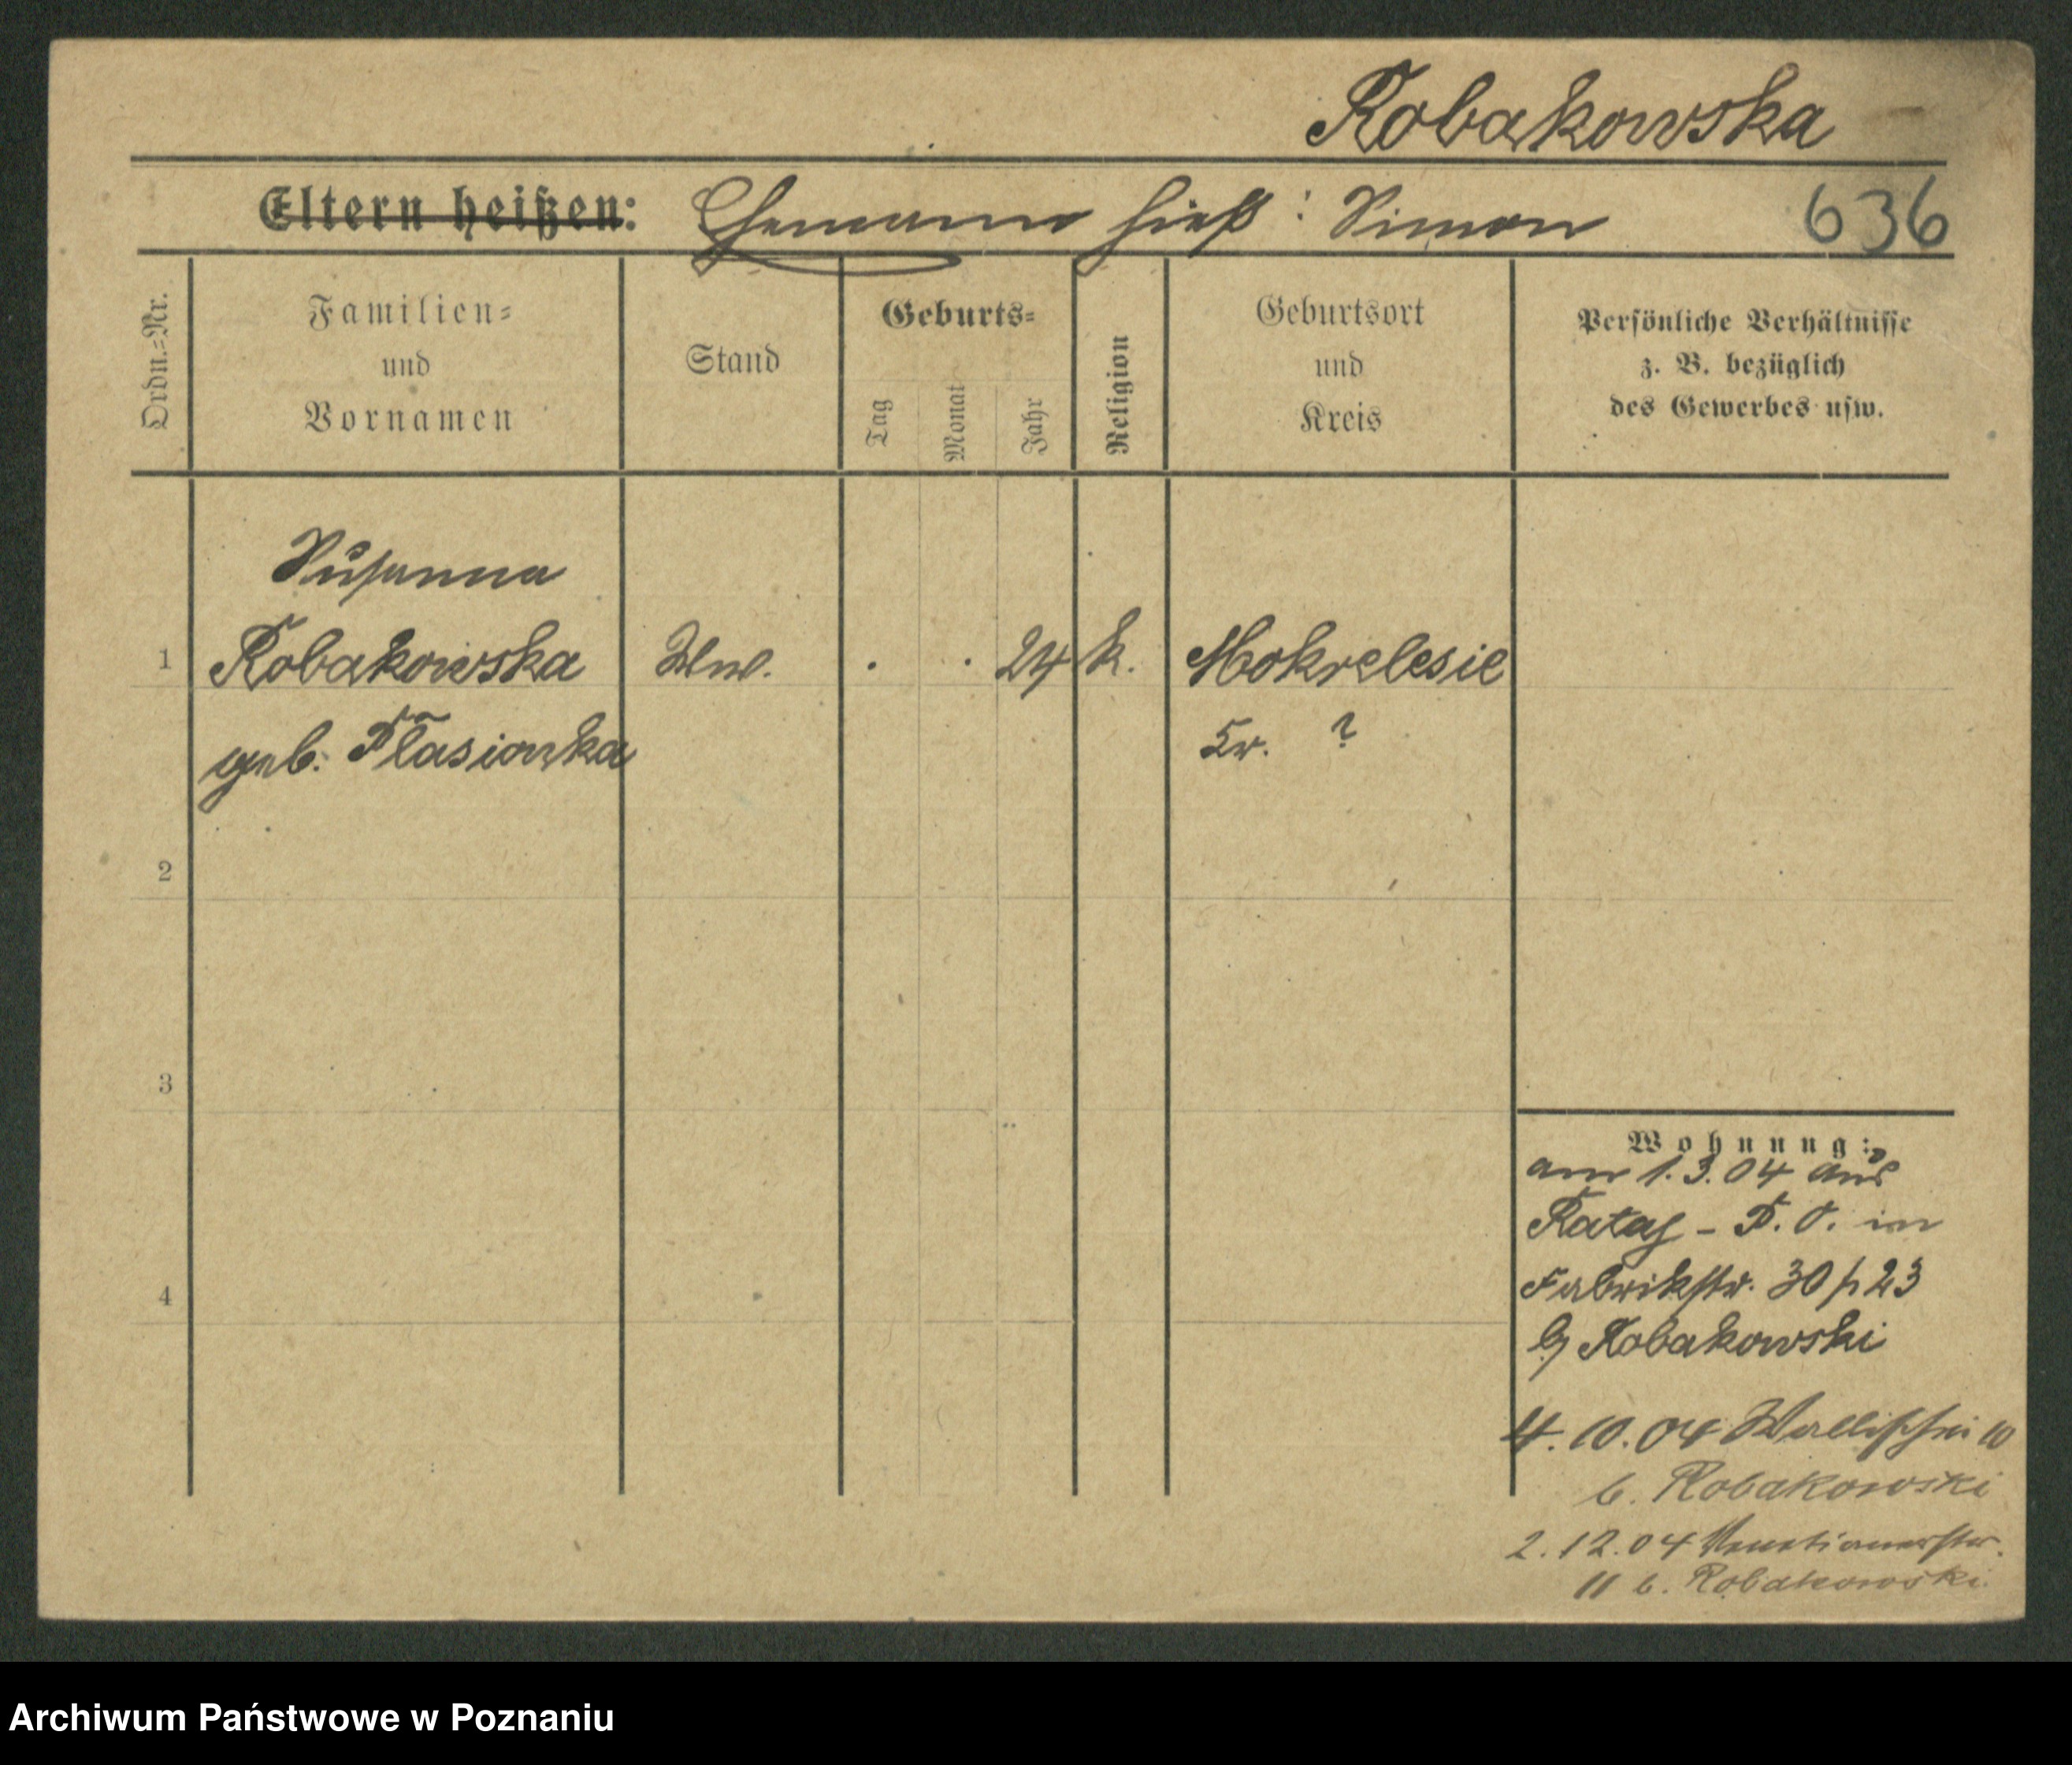 Robakowska
Eltern heißen: Ehemann hieß: Simon 636
Ordn.-Nr.
Familien-
und
Vornamen
Stand
Geburts-
Tag
Monat
Jahr
Religion
Geburtsort
und
Kreis
Persönliche Verhältnisse
z. B. bezüglich
des Gewerbes usw.
Susanna
1 Robakowska Ww. . . 24 k. Mokrelesie
geb. Ptasionka Kr. ?
2
3
4
Wohnung:
am 1.3.04 aus
Rataj - P. O. in
Fabrikstr. 30 p 23
b/ Robakowski
4.10.04 Wallischei 10
b. Robakowski
2.12.04 Venetianerstr.
11 b. Robakowski
Archiwum Państwowe w Poznaniu